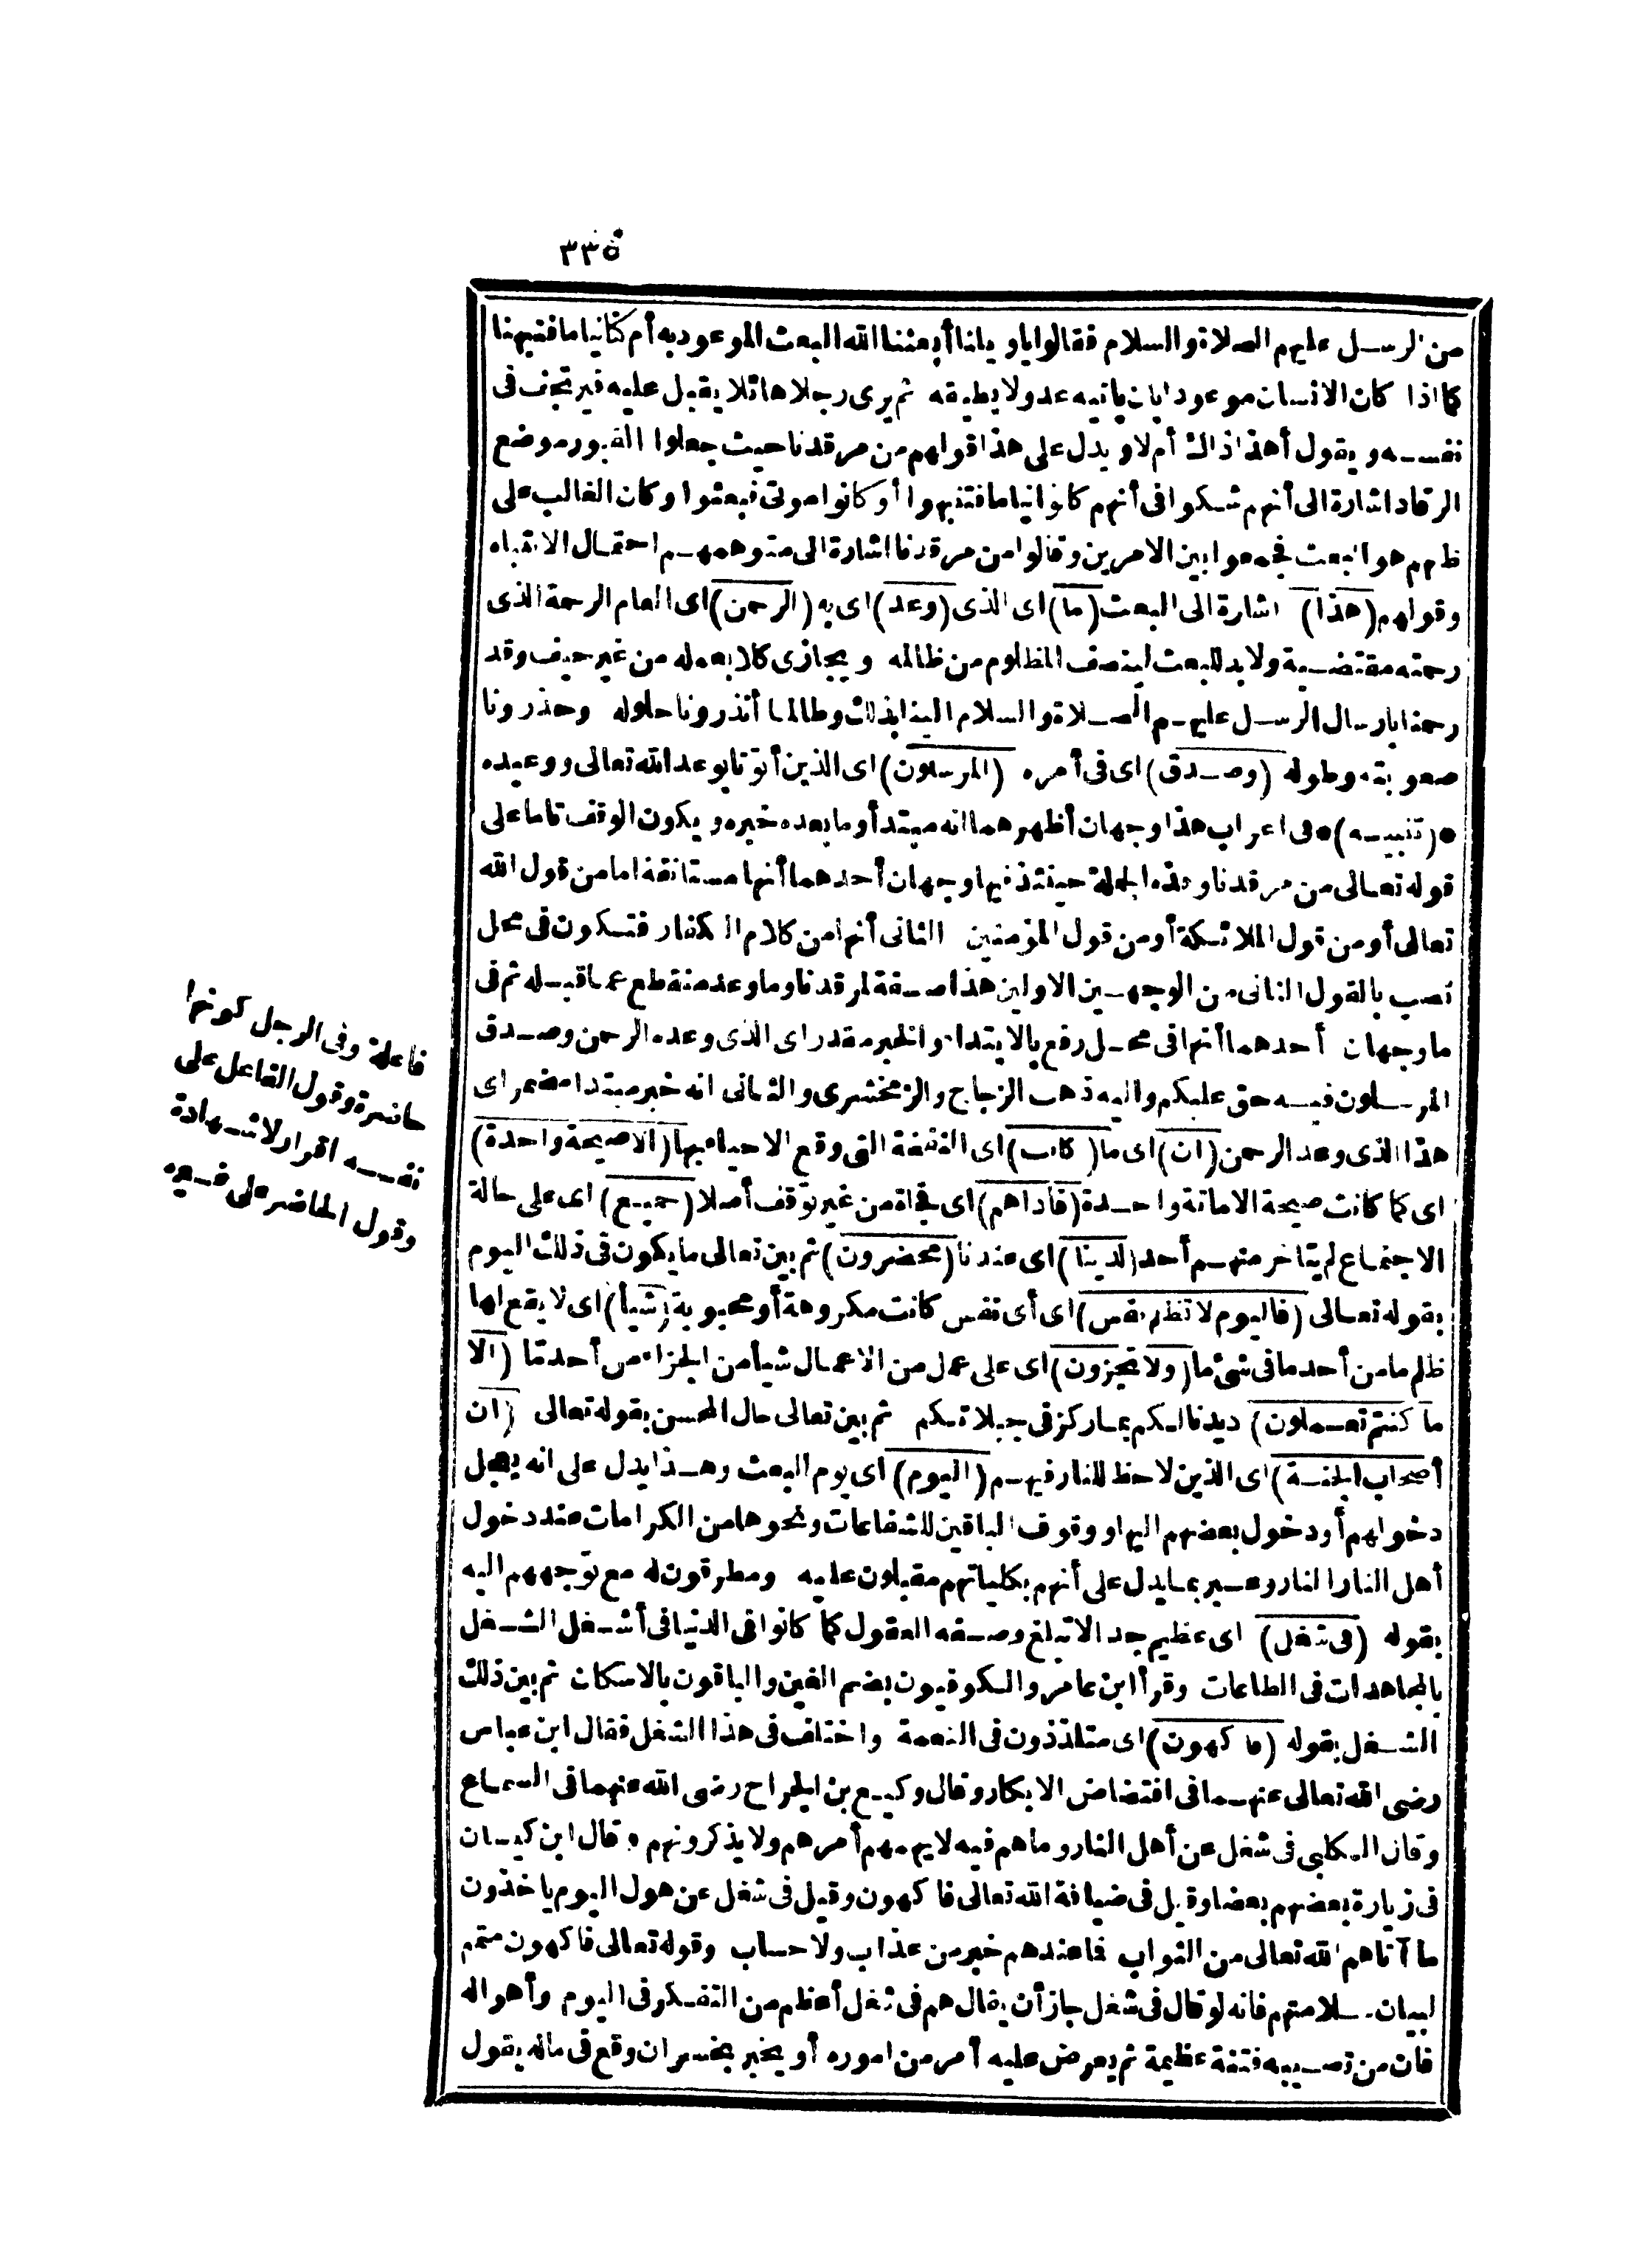 ٣٣٥
من الرسل عليهم الصلاة والسلام فقالوا ياويلنا أبعثنا الله البعث الموعود به أم كنا نياما فنبهنا
كما اذا كان الانسان موعودا بان ياتيه عدو لا يطيقه ثم يرى رجلا هائلا يقبل عليه فيرتجف فى
نفسه ويقول أهذا ذاك أم لا ويدل على هذا قولهم من مرقدنا حيث جعلوا القبور موضع
الرقاد اشارة الى أنهم شكوا فى أنهم كانوا نياما فتنبهوا أو كانوا موتى فبعثوا وكان الغالب على
ظنهم هو البعث فجمعوا بين الامرين وقالوا من مرقدنا اشارة الى متوهمهم احتمال الانتباه
وقولهم (هذا) اشارة الى البعث (ما) اى الذى (وعد) اى به (الرحمن) اى العام الرحمة الذى
رحمته مقتضية ولا بد للبعث لينصف المظلوم من ظالمه ويجازى كلا بعمله من غير حيف وقد
رحمنا بارسال الرسل عليهم الصلاة والسلام الينا بذلك وطالما أنذرونا حلوله وحذرونا
صعوبته وطوله (وصدق) اى فى أمره (المرسلون) اى الذين أتونا بوعد الله تعالى ووعيده
• (تنبيه) • فى اعراب هذا وجهان أظهرهما انه مبتدأ وما بعده خبره ويكون الوقف تاما على
قوله تعالى من مرقدنا وهذه الجملة حينئذ فيها وجهان أحدهما أنها مستانفة اما من قول الله
تعالى أو من قول الملائكة أو من قول المؤمنين الثانى أنها من كلام الكفار فتكون فى محل
نصب بالقول الثانى من الوجهين الاولين هذا صفة لمرقدنا وما وعد منقطع عما قبله ثم فى
ما وجهان أحدهما أنها فى محل رفع بالابتداء والخبر مقدر اى الذى وعده الرحمن وصدق
المرسلون فيه حق عليكم واليه ذهب الزجاج والزمخشرى والثانى انه خبر مبتدا مضمر اى
هذا الذى وعد الرحمن (ان) اى ما (كانت) اى النفخة التى وقع الاحياء بها (الا صيحة واحدة)
اى كما كانت صيحة الاماتة واحدة (فاذاهم) اى فجاة من غير توقف أصلا (جميع) اى على حالة
الاجتماع لم يتاخر منهم أحد (لدينا) اى عندنا (محضرون) ثم بين تعالى ما يكون فى ذلك اليوم
بقوله تعالى (فاليوم لا تظلم نفس) اى أى نفس كانت مكروهة أو محبوبة (شيأ) اى لا يقع لها
ظلم ما من أحد ما فى شئ ما (ولا تجزون) اى على عمل من الاعمال شيأ من الجزاء من أحد ما (الا
ما كنتم تعملون) ديدنا لكم بما ركز فى جبلاتكم ثم بين تعالى حال المحسن بقوله تعالى (ان
أصحاب الجنة) اى الذين لا حظ للنار فيهم (اليوم) اى يوم البعث وهذا يدل على انه يعجل
دخولهم أو دخول بعضهم اليها ووقوف الباقين للشفاعات ونحوها من الكرامات عند دخول
أهل النار النار وعبر بما يدل على أنهم بكلياتهم مقبلون عليه ومطرقون له مع توجههم اليه
بقوله (فى شغل) اى عظيم جدا لا تبلغ وصفه العقول كما كانوا فى الدنيا فى أشغل الشغل
بالمجاهدات فى الطاعات وقرأ ابن عامر والكوفيون بضم الغين والباقون بالاسكان ثم بين ذلك
الشغل بقوله (فاكهون) اى متلذذون فى النعمة واختلف فى هذا الشغل فقال ابن عباس
رضى الله تعالى عنهما فى افتضاض الابكار وقال وكيع بن الجراح رضى الله عنهما فى السماع
وقال الكلبى فى شغل عن أهل النار وما هم فيه لا يهمهم أمرهم ولا يذكرونهم وقال ابن كيسان
فى زيارة بعضهم بعضا وقيل فى ضيافة الله تعالى فاكهون وقيل فى شغل عن هول اليوم ياخذون
ما آتاهم الله تعالى من الثواب فما عندهم خبر من عذاب ولا حساب وقوله تعالى فاكهون متمم
لبيان سلامتهم فانه لو قال فى شغل جاز أن يقال هم فى شغل أعظم من التفكر فى اليوم وأهواله
فان من تصيبه فتنة عظيمة ثم يعرض عليه أمر من اموره أو يخبر بخسران وقع فى ماله يقول
فاعلة وفى الرجل كونها
حاضرة وقول الفاعل على
نفسه اقرار لا شهادة
وقول الحاضر على